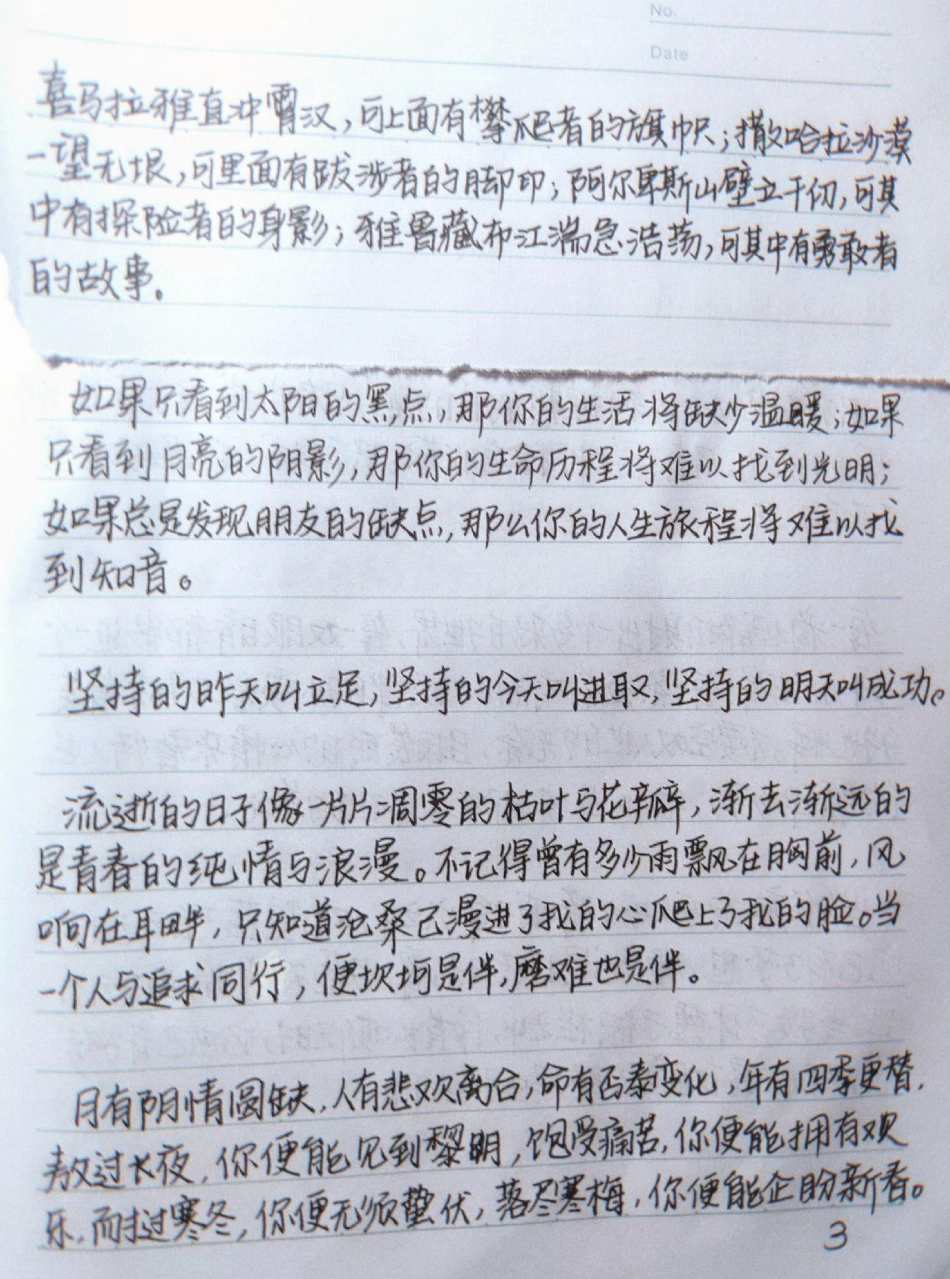 No.
Date
喜马拉雅直冲霄汉,可上面有攀爬者的旗帜;撒哈拉沙漠
一望无垠,可里面有跋涉者的脚印;阿尔卑斯山壁立千仞,可其
中有探险者的身影;雅鲁藏布江湍急浩荡,可其中有勇敢者
的故事。
如果只看到太阳的黑点,那你的生活将缺少温暖;如果
只看到月亮的阴影,那你的生命历程将难以找到光明;
如果总是发现朋友的缺点,那么你的人生旅程将难以找
到知音。
坚持的昨天叫立足,坚持的今天叫进取,坚持的明天叫成功。
流逝的日子像一片片凋零的枯叶与花瓣,渐去渐远的
是青春的纯情与浪漫。不记得曾有多少雨飘在胸前,风
响在耳畔,只知道沧桑已漫进了我的心爬上了我的脸。当
一个人与追求同行,便坎坷是伴,磨难也是伴。
月有阴情圆缺,人有悲欢离合,命有否泰变化,年有四季更替,
熬过长夜,你便能见到黎明,饱受痛苦,你便能拥有欢
乐,而挨过寒冬,你便无须蛰伏,落尽寒梅,你便能企盼新春。
3